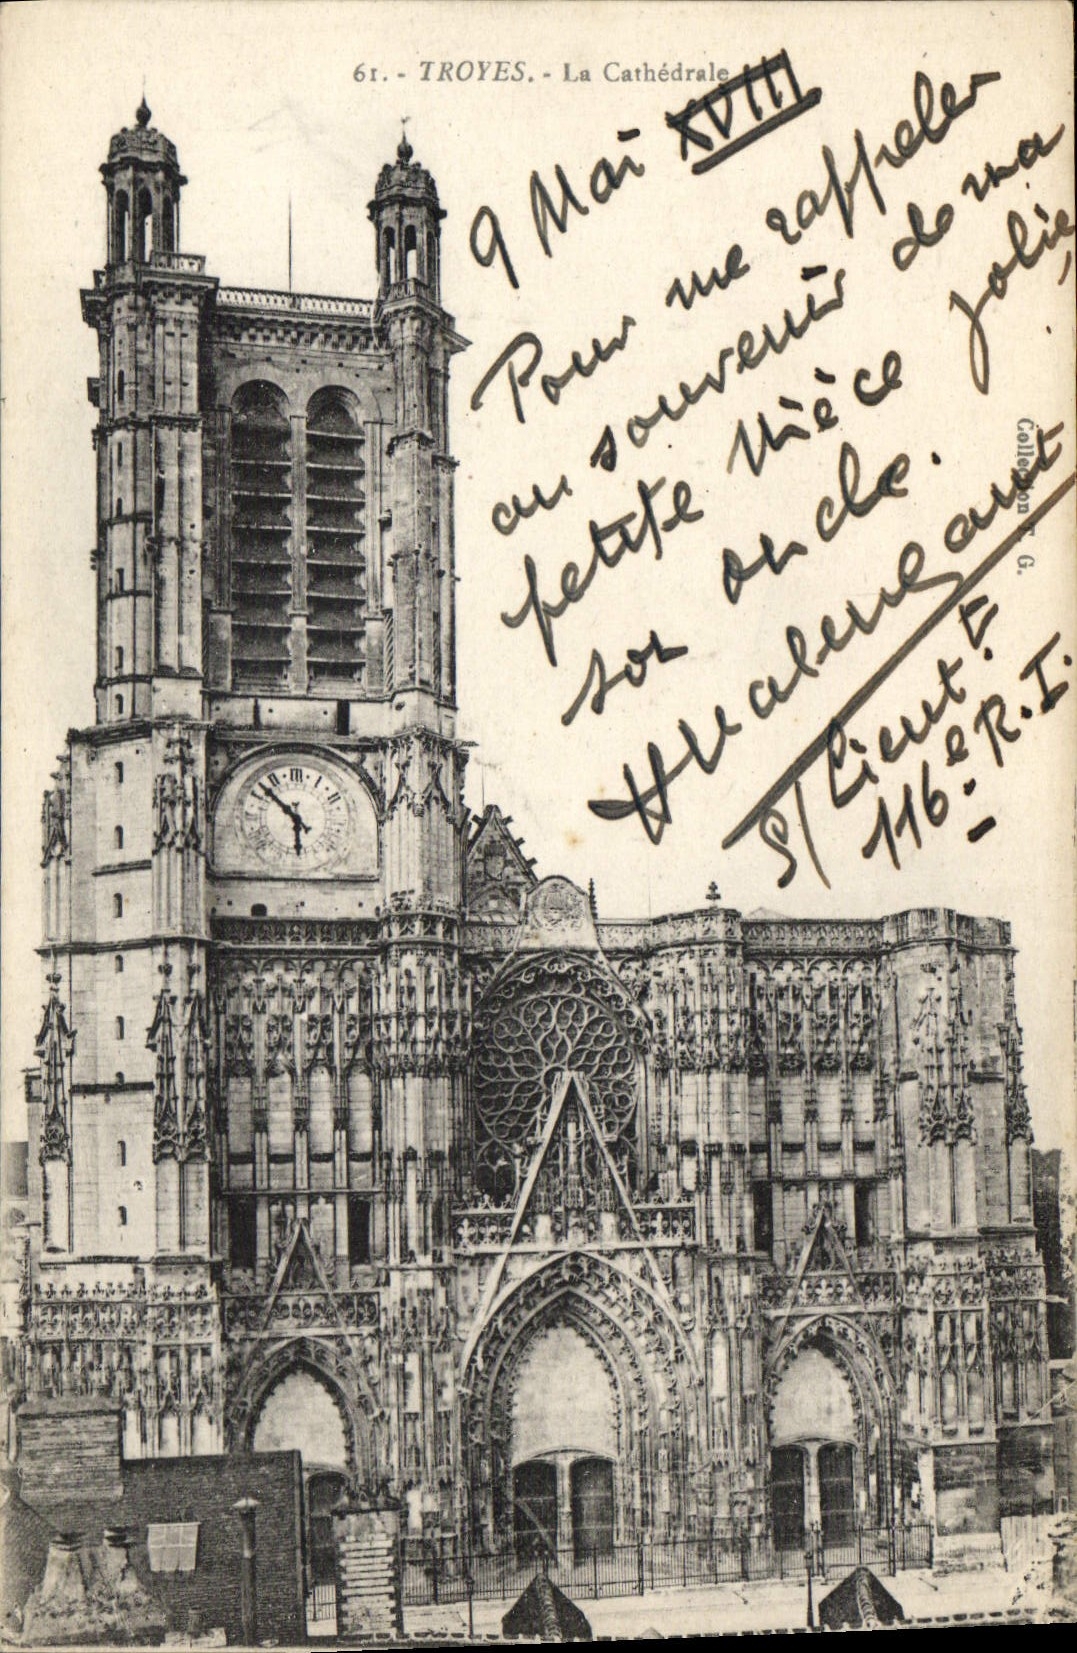 61. - TROYES. - La Cathédrale
9 Mai XVIII
Pour me rappeler
au souvenir de ma
petite Nièce jolie,
son oncle.
S/Lieut.t
116e R.I.
Collection F. G.